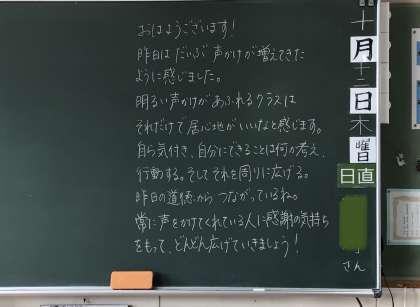 おはようございます!
昨日はだいぶ声かけが増えてきた
ように感じました。
明るい声かけがあふれるクラスは
それだけで居心地がいいなと感じます。
自ら気付き、自分にできることは何か考え、
行動する。そしてそれを周りに広げる。
昨日の道徳からつながっているね。
常に声をかけてくれている人に感謝の気持ち
をもって、どんどん広げていきましょう!
十月十二日木曜日
日直
さん